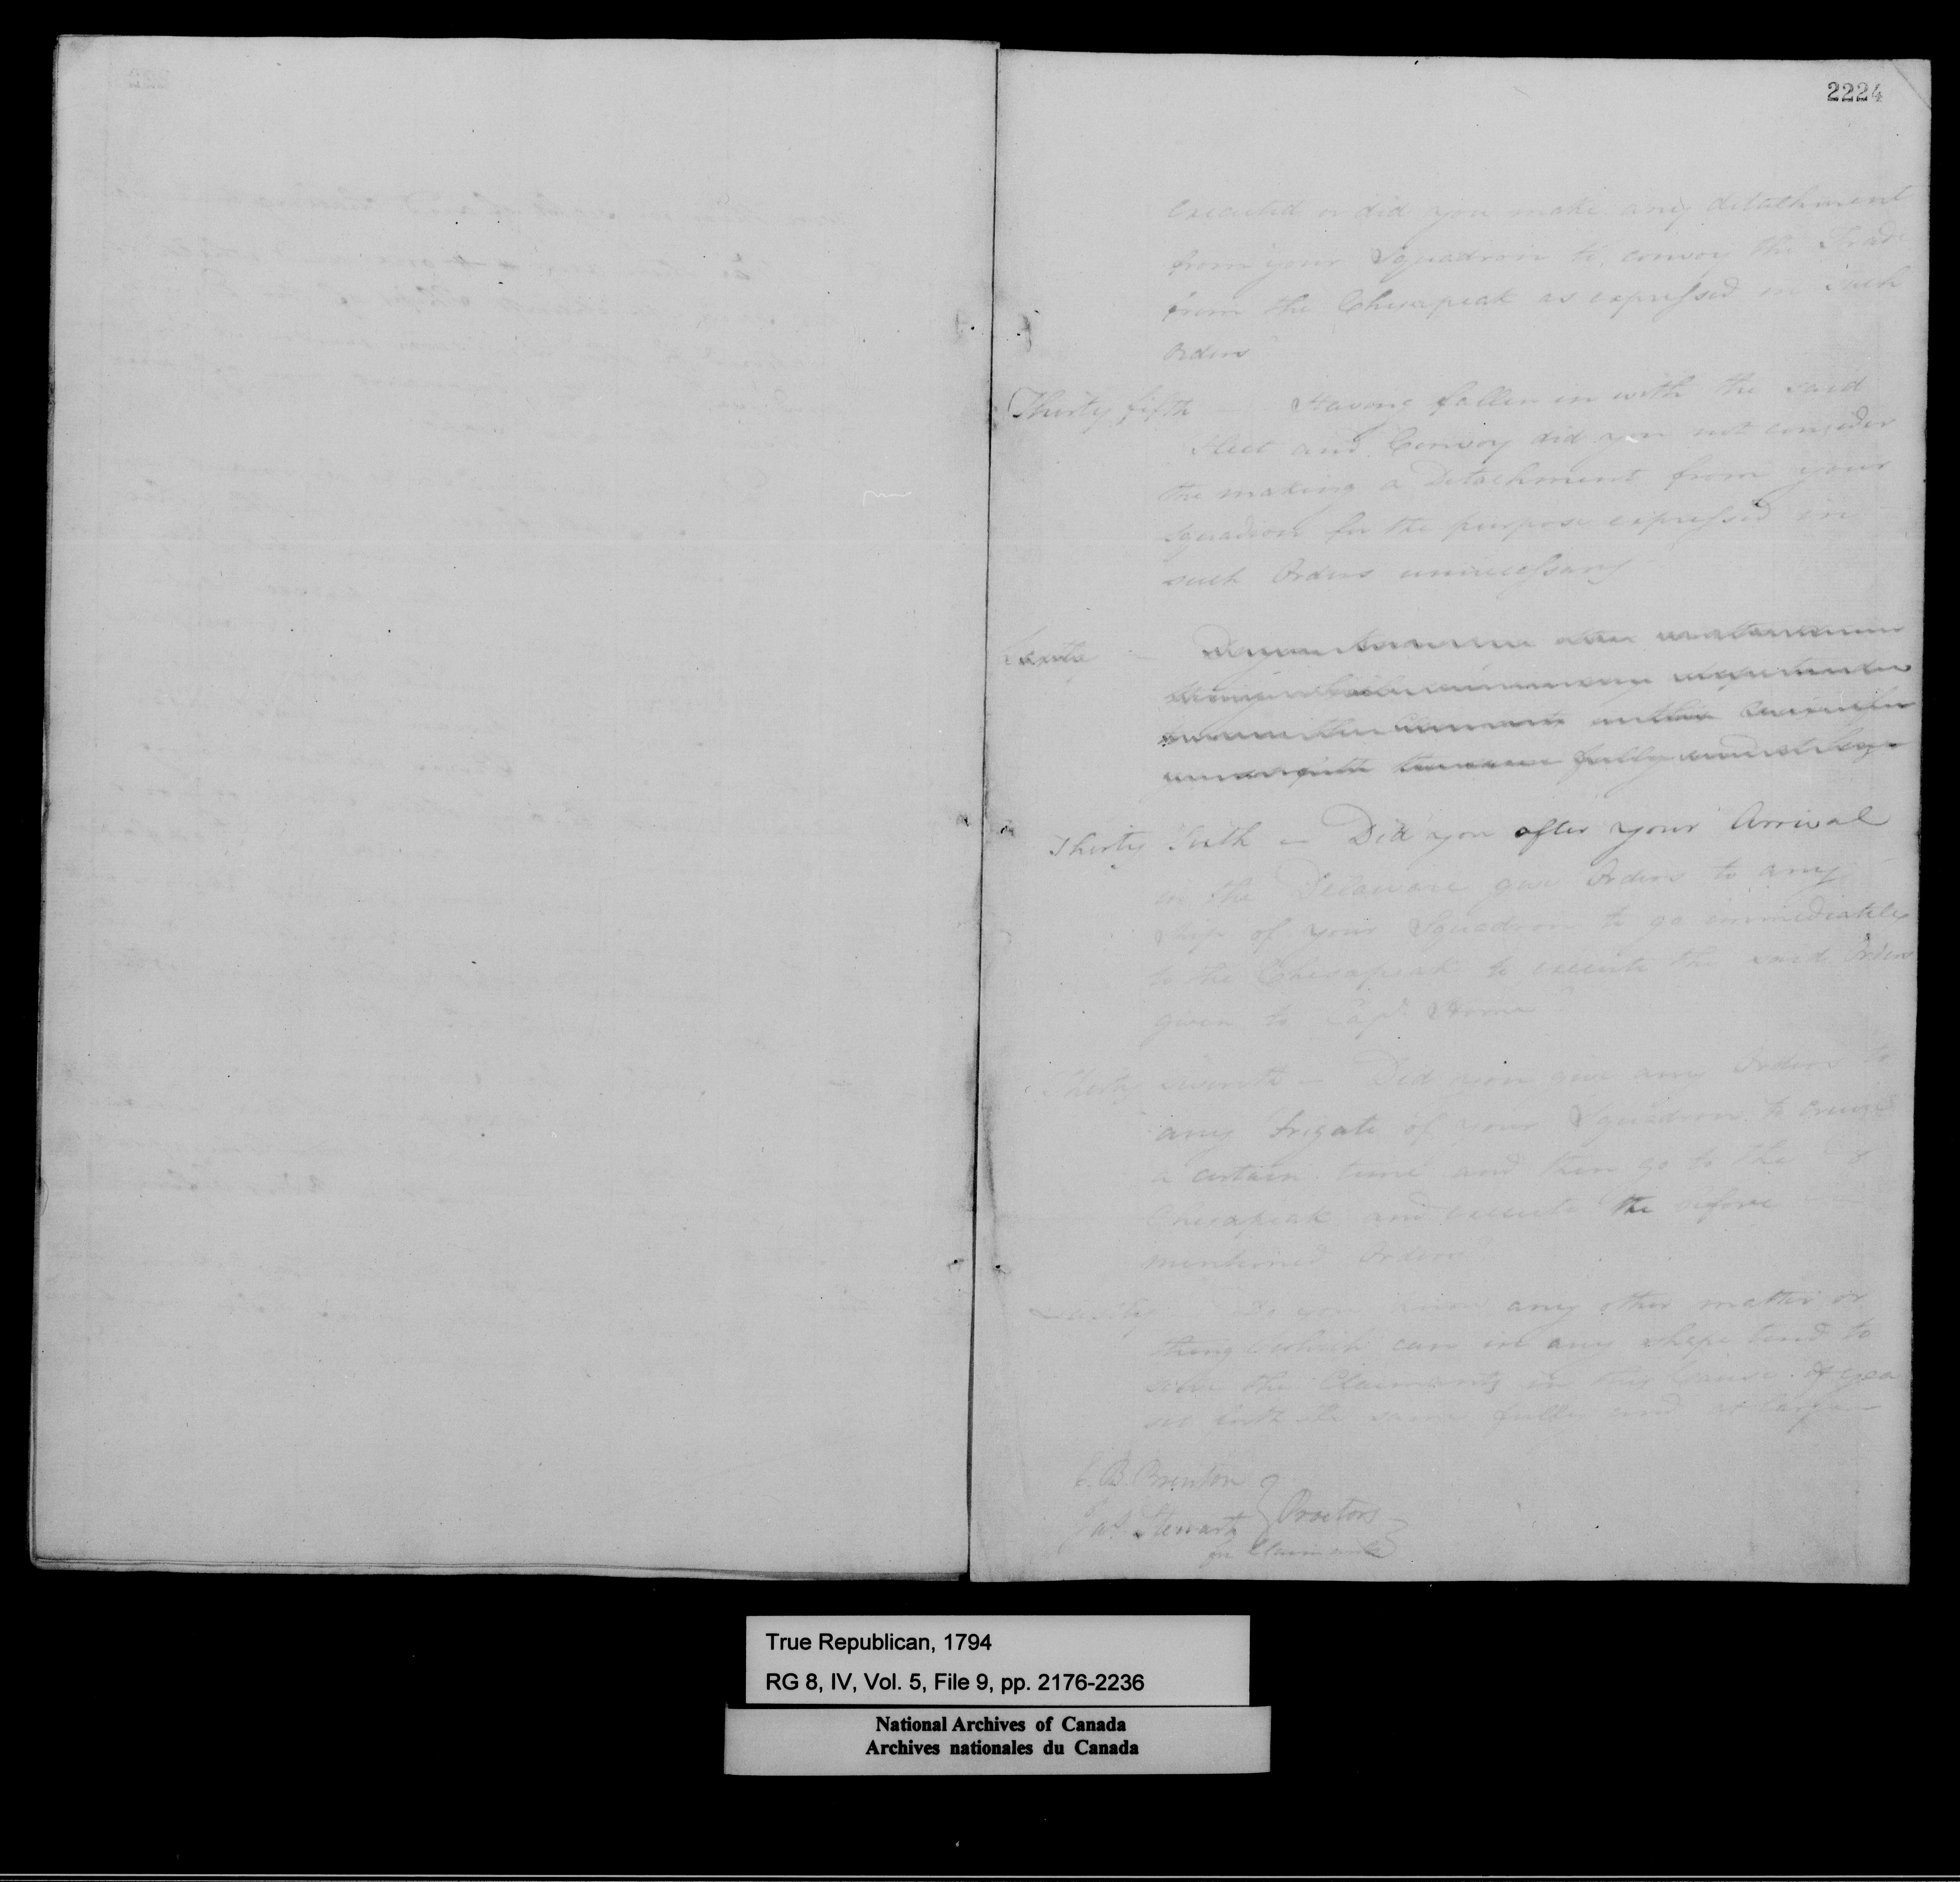 2224
executed or did you make any detachment
from your Squadron to convoy the Trade
from the Chesapeak as expressed in such
Orders
Thirty fifth Having fallen in with the said
Fleet and Convoy did you not consider
the making a Detachment from your
Squadron for the purpose expressed in
such Orders unnecessary
fully
Thirty Sixth – Did you after your Arrival
in the Delaware give Orders to any
Ship of your Squadron to go immediately
to the Chesapeak to execute the said Orders
given to Capt.
Thirty seventh – Did you give any Orders to
any Frigate of your Squadron to Cruize
a certain time and then go to the
Chesapeak and execute the before
mentioned Orders
Lastly Do you know any other matter or
thing which can in any shape tend to
the Claimants in this Cause. if yea
set forth the same fully and at large
C. B. Brenton
Jas. Stewart } Proctors
for Claimants
True Republican, 1794
RG 8, IV, Vol. 5, File 9, pp. 2176-2236
National Archives of Canada
Archives nationales du Canada